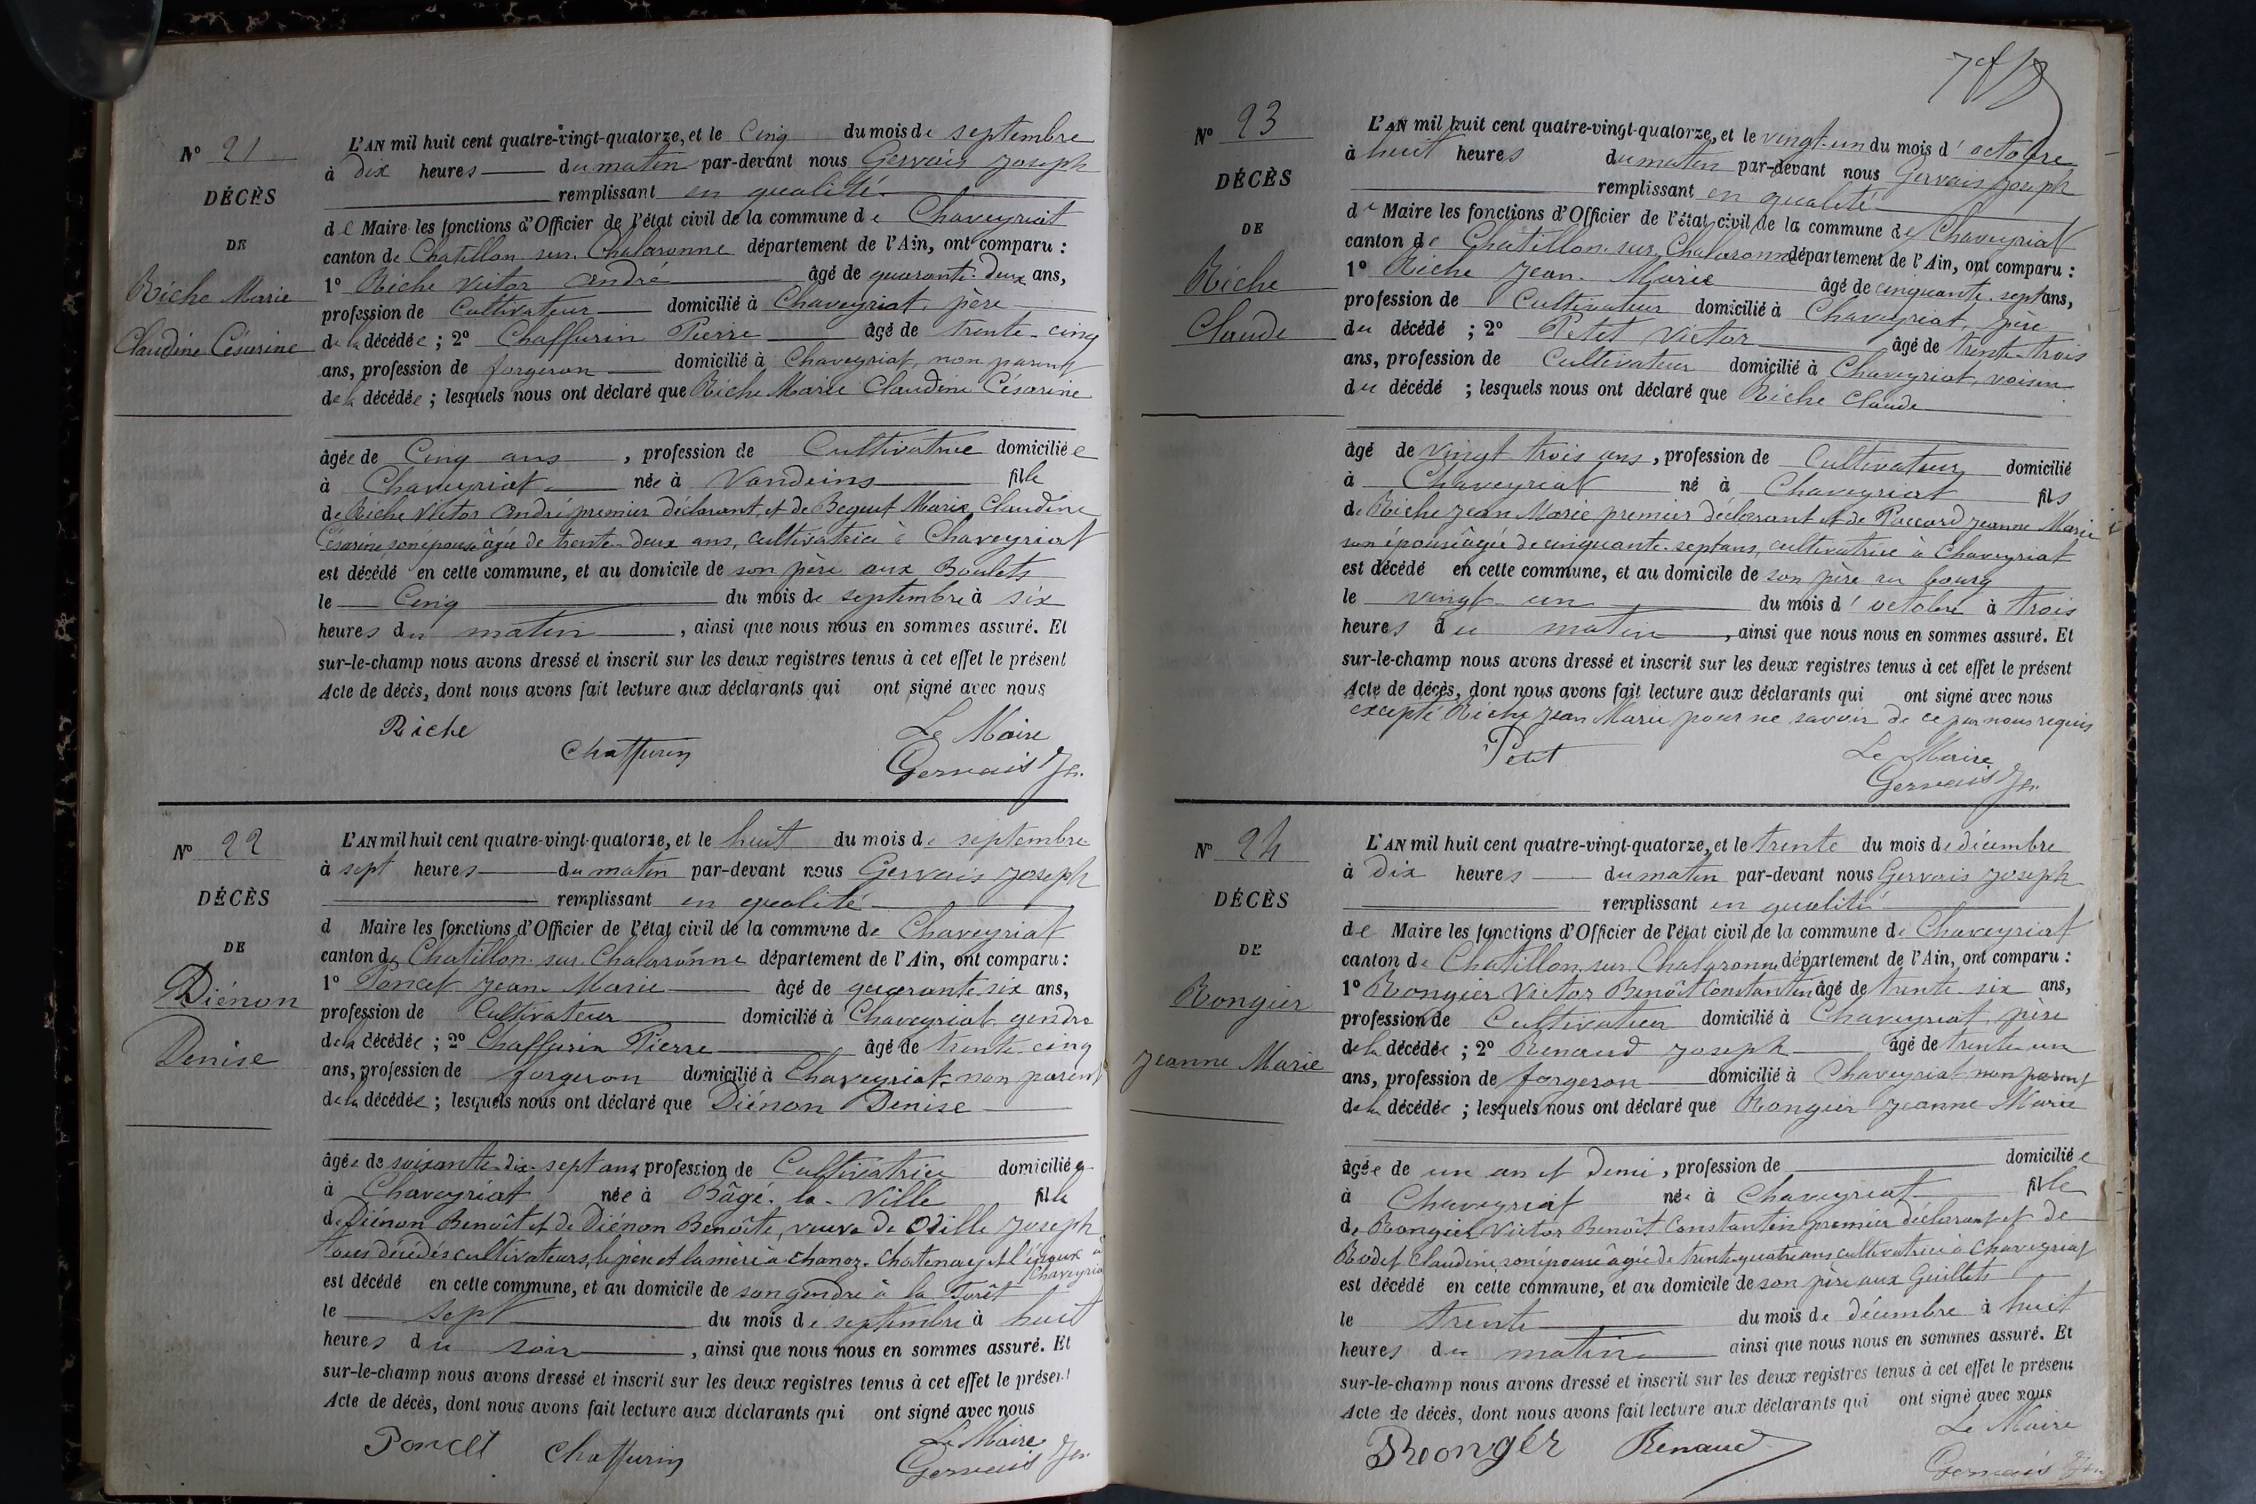 N° 21
DÉCÈS
DE
Riche Marie
Claudine Césarine
L'AN mil huit cent quatre-vingt-quatorze, et le Cinq du mois de septembre
à dix heures du matin par-devant nous Gervais Joseph
remplissant en qualité
de Maire les fonctions d'Officier de l'état civil de la commune de Chaveyriat
canton de Chatillon sur Chalaronne département de l'Ain, ont comparu :
1° Riche Victor André âgé de quarante-deux ans,
profession de Cultivateur domicilié à Chaveyriat, père
de la décédée ; 2° Chaffurin Pierre âgé de trente-cinq
ans, profession de forgeron domicilié à Chaveyriat, non parent
de la décédée ; lesquels nous ont déclaré que Riche Marie Claudine Césarine
âgée de Cinq ans, profession de Cultivatrice domiciliée
à Chaveyriat née à Vandeins fille
de Riche Victor André premier déclarant, et de Bequet Marie Claudine
Césarine, son épouse âgée de trente-deux ans, cultivatrice à Chaveyriat
est décédé en cette commune, et au domicile de son père aux Boulets
le Cinq du mois de septembre à six
heures du matin, ainsi que nous nous en sommes assuré. Et
sur-le-champ nous avons dressé et inscrit sur les deux registres tenus à cet effet le présent
Acte de décès, dont nous avons fait lecture aux déclarants qui ont signé avec nous
Riche
Chaffurin
Le Maire
Gervais Jh.
N° 22
DÉCÈS
DE
Diénon
Denise
L'AN mil huit cent quatre-vingt-quatorze, et le huit du mois de septembre
à sept heures du matin par-devant nous Gervais Joseph
remplissant en qualité
d Maire les fonctions d'Officier de l'état civil de la commune de Chaveyriat
canton de Chatillon sur Chalaronne département de l'Ain, ont comparu :
1° Poncet Jean Marie âgé de quarante six ans,
profession de Cultivateur domicilié à Chaveyriat gendre
de la décédée ; 2° Chaffurin Pierre âgé de trente-cinq
ans, profession de forgeron domicilié à Chaveyriat, non parent
de la décédée ; lesquels nous ont déclaré que Diénon Denise
âgée de soixante-dix-sept ans profession de Cultivatrice domiciliée
à Chaveyriat née à Bâgé-la-Ville fille
de Diénon Benoît et de Diénon Benoîte, veuve de Odille Joseph
tous décédés cultivateurs, le père et la mère à Chanoz-Chatenay et l'époux à
Chaveyriat
est décédé en cette commune, et au domicile de son gendre à la Forêt
le sept du mois de septembre à huit
heures du soir, ainsi que nous nous en sommes assuré. Et
sur-le-champ nous avons dressé et inscrit sur les deux registres tenus à cet effet le présent
Acte de décès, dont nous avons fait lecture aux déclarants qui ont signé avec nous
Poncet
Chaffurin
Le Maire
Gervais Jh.
N° 23
DÉCÈS
DE
Riche
Claude
L'AN mil huit cent quatre-vingt-quatorze, et le vingt-un du mois d'octobre
à huit heures du matin par-devant nous Gervais Joseph
remplissant en qualité
de Maire les fonctions d'Officier de l'état civil de la commune de Chaveyriat
canton de Chatillon-sur-Chalaronne département de l'Ain, ont comparu :
1° Riche Jean-Marie âgé de cinquante-sept ans,
profession de Cultivateur domicilié à Chaveyriat, père
du décédé ; 2° Petit Victor âgé de trente-trois
ans, profession de Cultivateur domicilié à Chaveyriat, voisin
du décédé ; lesquels nous ont déclaré que Riche Claude
âgé de vingt trois ans, profession de Cultivateur domicilié
à Chaveyriat né à Chaveyriat fils
de Riche Jean Marie premier déclarant et de Paccard Jeanne Marie
son épouse âgée de cinquante-sept ans, cultivatrice à Chaveyriat
est décédé en cette commune, et au domicile de son père au bourg
le vingt-un du mois d'octobre à trois
heures du matin, ainsi que nous nous en sommes assuré. Et
sur-le-champ nous avons dressé et inscrit sur les deux registres tenus à cet effet le présent
Acte de décès, dont nous avons fait lecture aux déclarants qui ont signé avec nous
excepté Riche Jean Marie pour ne savoir de ce par nous requis
Petit
Le Maire
Gervais Jh.
N° 24
DÉCÈS
DE
Rongier
Jeanne Marie
L'AN mil huit cent quatre-vingt-quatorze, et le trente du mois de décembre
à dix heures du matin par-devant nous Gervais Joseph
remplissant en qualité
de Maire les fonctions d'Officier de l'état civil de la commune de Chaveyriat
canton de Chatillon sur Chalaronne département de l'Ain, ont comparu :
1° Rongier Victor Benoît Constantin âgé de trente-six ans,
profession de Cultivateur domicilié à Chaveyriat, père
de la décédée ; 2° Renaud Joseph âgé de trente-un
ans, profession de forgeron domicilié à Chaveyriat non parent
de la décédée ; lesquels nous ont déclaré que Rongier Jeanne Marie
âgée de un an et demi, profession de domiciliée
à Chaveyriat née à Chaveyriat fille
de Rongier Victor Benoît Constantin premier déclarant et de
Bodet Claudine son épouse âgée de trente-quatre ans cultivatrice à Chaveyriat
est décédé en cette commune, et au domicile de son père aux Guillets
le trente du mois de décembre à huit
heures du matin ainsi que nous nous en sommes assuré. Et
sur-le-champ nous avons dressé et inscrit sur les deux registres tenus à cet effet le présent
Acte de décès, dont nous avons fait lecture aux déclarants qui ont signé avec nous
Rongér
Renaud
Le Maire
Gervais Jh.